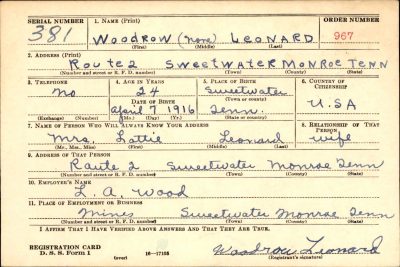 SERIAL NUMBER 1. NAME (Print) ORDER NUMBER
381 WOODROW (none) LEONARD 967
(First) (Middle) (Last)
2. ADDRESS (Print)
Route 2 SWEETWATER MONROE TENN
(Number and street or R. F. D. number) (Town) (County) (State)
3. TELEPHONE 4. AGE IN YEARS 5. PLACE OF BIRTH 6. COUNTRY OF CITIZENSHIP
no 24 Sweetwater
DATE OF BIRTH (Town or county) U.S.A
April 7 1916 Tenn.
(Exchange) (Number) (Mo.) (Day) (Yr.) (State or country)
7. NAME OF PERSON WHO WILL ALWAYS KNOW YOUR ADDRESS 8. RELATIONSHIP OF THAT PERSON
Mrs. Lottie Leonard wife
(Mr., Mrs., Miss) (First) (Middle) (Last)
9. ADDRESS OF THAT PERSON
Route 2 Sweetwater Monroe Tenn
(Number and street or R. F. D. number) (Town) (County) (State)
10. EMPLOYER'S NAME
L. A. Wood
11. PLACE OF EMPLOYMENT OR BUSINESS
Mines Sweetwater Monroe Tenn
(Number and street or R. F. D. number) (Town) (County) (State)
I AFFIRM THAT I HAVE VERIFIED ABOVE ANSWERS AND THAT THEY ARE TRUE.
REGISTRATION CARD
D. S. S. Form 1 (over) 16—17105 Woodrow Leonard
(Registrant's signature)